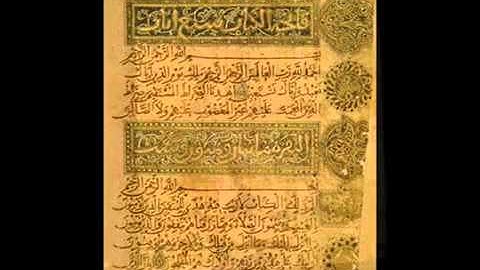 فاتحة الكتاب سبع آيات
بسم الله الرحمن الرحيم
الحمد لله رب العالمين الرحمن الرحيم ملك يوم الدين اياك
نعبد واياك نستعين اهدنا الصراط المستقيم صراط
الذين انعمت عليهم غير المغضوب عليهم ولا الضالين
بسم الله الرحمن الرحيم
الم ذلك الكتاب لا ريب فيه هدى للمتقين الذين
يؤمنون بالغيب ويقيمون الصلوة ومما رزقناهم ينفقون والذين يؤمنون
بما انزل اليك وما انزل من قبلك وبالاخرة هم يوقنون